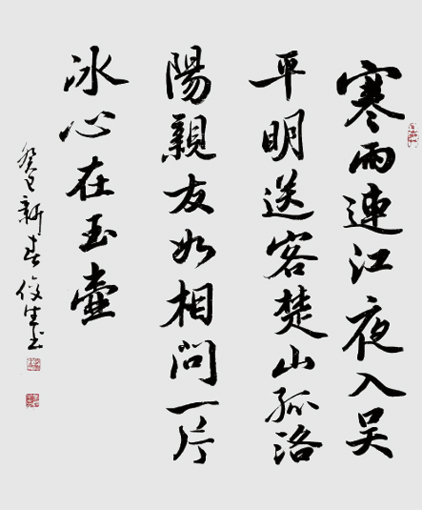 寒雨連江夜入吴
平明送客楚山孤洛
陽親友如相問一片
冰心在玉壺
癸巳新春俊生书